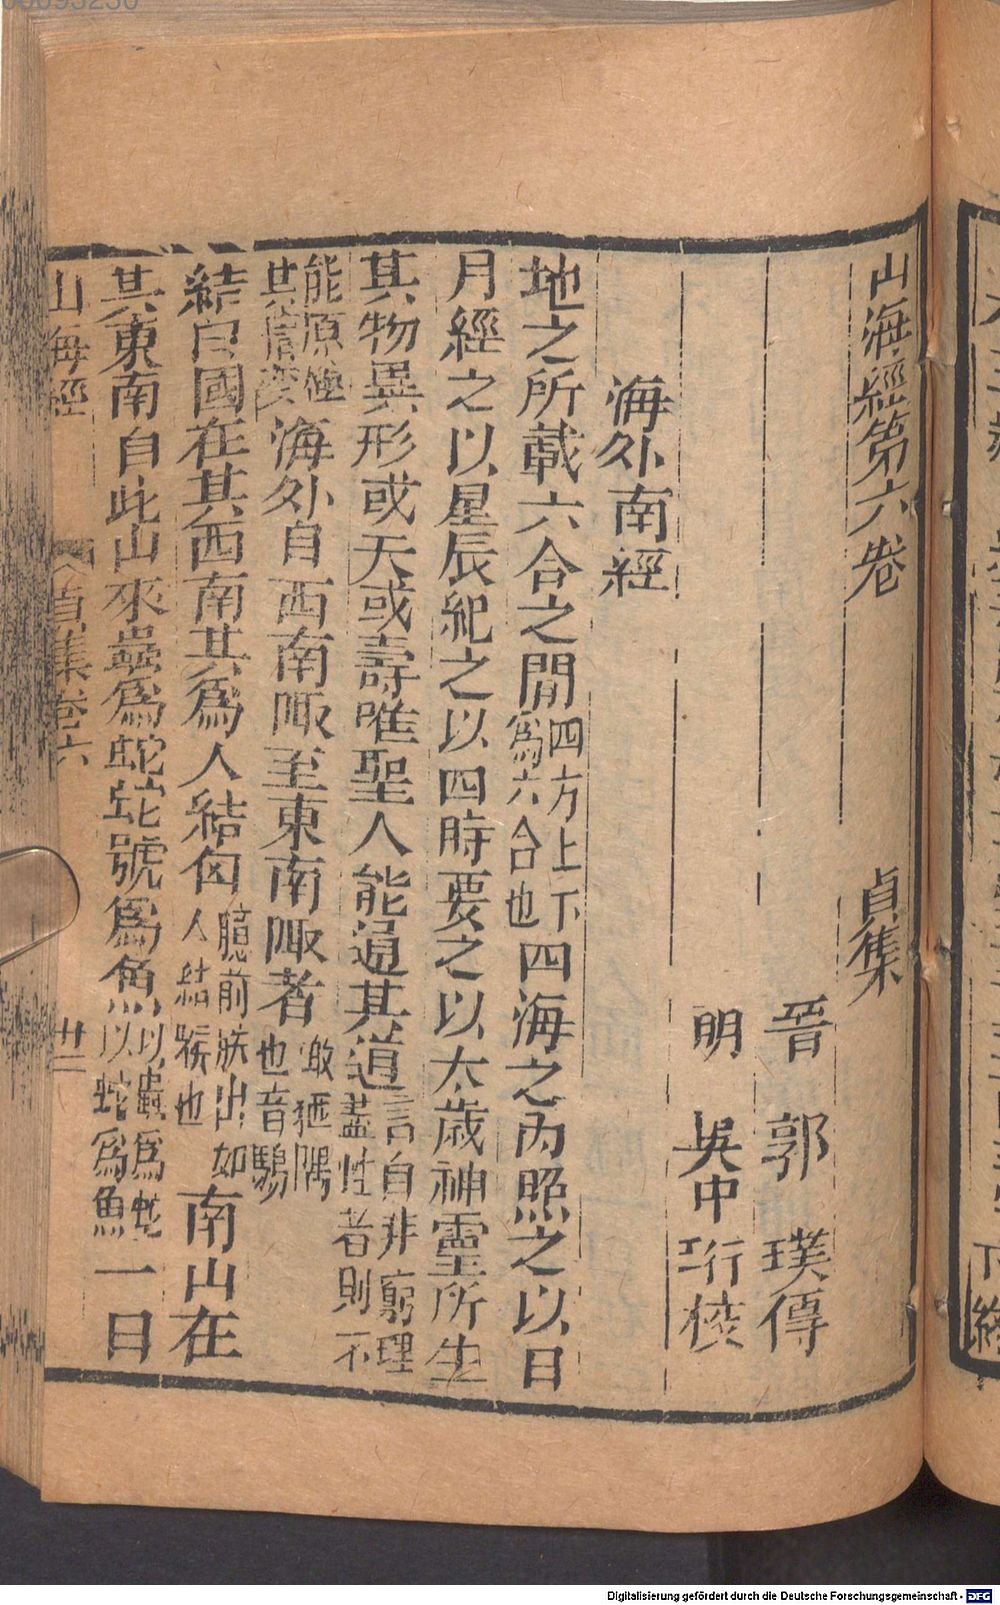 山海經第六卷　貞集
晉　郭　璞傳
明　吳中珩校
海外南經
地之所載六合之閒四方上下爲六合也四海之內照之以日
月經之以星辰紀之以四時要之以太歲神靈所生
其物異形或夭或壽唯聖人能通其道言自非窮理盡性者則不
能原極其情變海外自西南陬至東南陬者陬猶隅也音騶
結匈國在其西南其爲人結匈臆前胅出如人結喉也南山在
其東南自此山來蟲爲蛇蛇號爲魚以蟲爲蛇以蛇爲魚一曰
山海經　貞集卷六　廿一
Digitalisierung gefördert durch die Deutsche Forschungsgemeinschaft - DFG